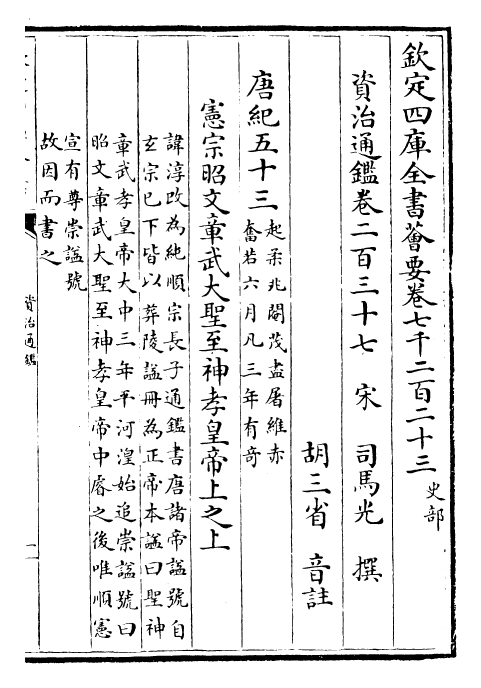 欽定四庫全書薈要卷七千二百二十三 史部
資治通鑑卷二百三十七 宋 司馬光 撰
胡三省 音註
唐紀五十三 起柔兆閹茂盡屠維赤
奮若六月凡三年有奇
憲宗昭文章武大聖至神孝皇帝上之上
諱淳改為純順宗長子通鑑書唐諸帝諡號自
玄宗已下皆以葬陵諡冊為正帝本諡曰聖神
章武孝皇帝大中三年平河湟始追崇諡號曰
昭文章武大聖至神孝皇帝中睿之後唯順憲
宣有尊崇諡號
故因而書之
資治通鑑
一